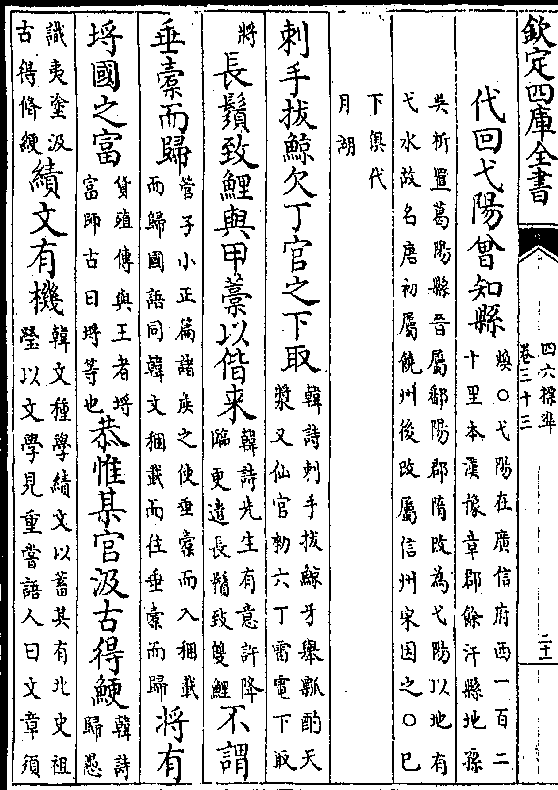 欽定四庫全書
四六標準
卷三十三
二十一
代回弋陽曾知縣
煥○弋陽在廣信府西一百二
十里本漢豫章郡餘汗縣地孫
吳析置葛陽縣晉屬鄱陽郡隋改為弋陽以地有
弋水故名唐初屬饒州後改屬信州宋因之○已
下俱代
月湖
刺手拔鯨欠丁官之下取
韓詩刺手拔鯨牙舉瓢酌天
漿又仙官勑六丁雷電下取
將
長鬚致鯉與甲藁以偕来
韓詩先生有意許降
臨更遣長鬚致雙鯉
不謂
垂橐而歸
管子小正篇諸矦之使垂橐而入稛載
而歸國語同韓文稛載而往垂橐而歸
将有
埒國之富
貨殖傳與王者埒
富師古曰埒等也
恭惟某官汲古得鯁
韓詩
歸愚
識夷塗汲
古得脩綆
績文有機
韓文種學績文以蓄其有北史祖
瑩以文學見重嘗語人曰文章須